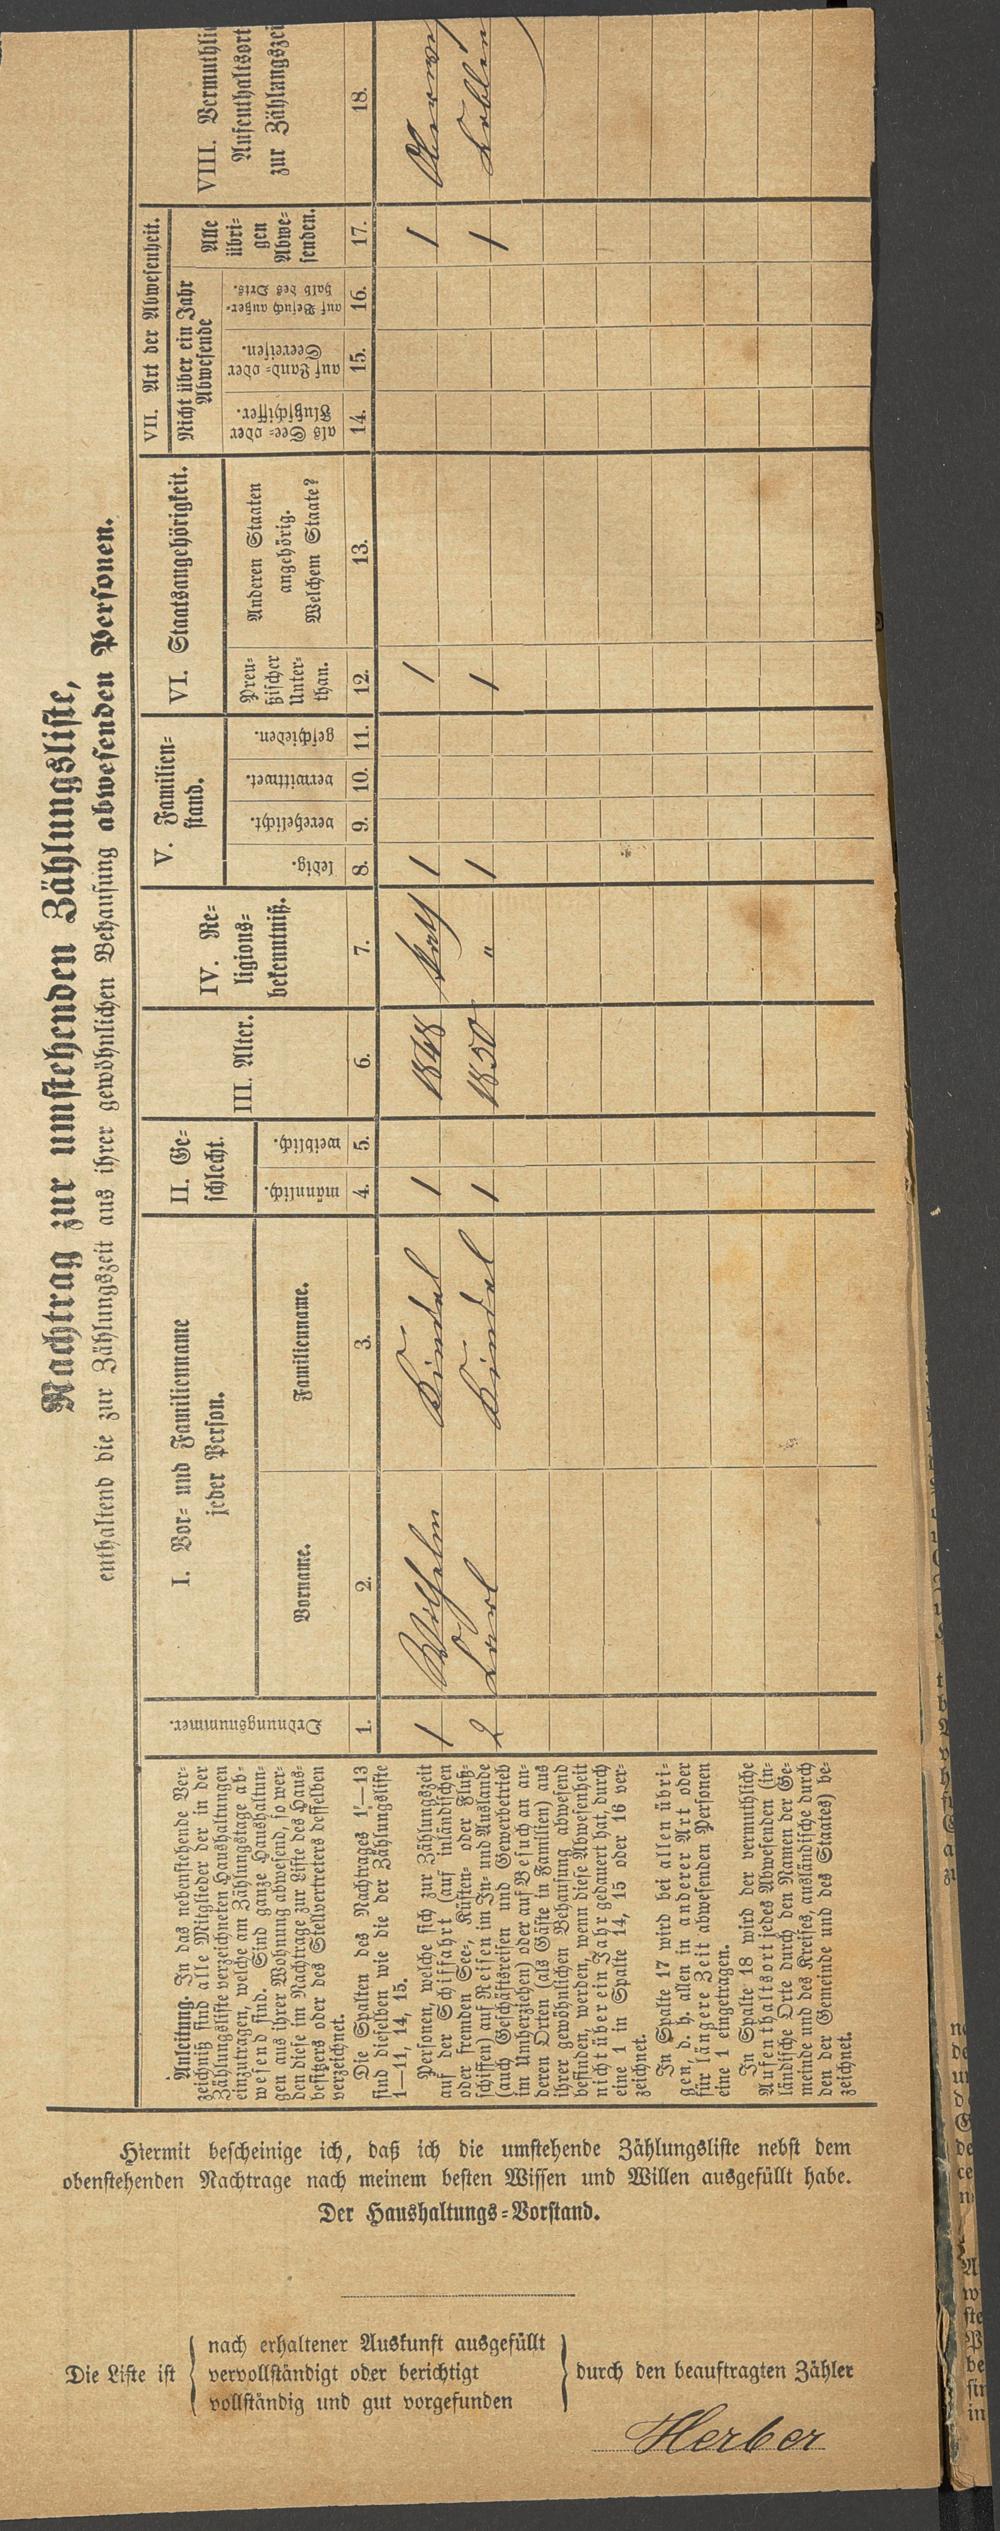 Nachtrag zur umstehenden Zählungsliste,
enthaltend die zur Zählungszeit aus ihrer gewöhnlichen Behausung abwesenden Personen.
Anleitung. In das nebenstehende Ver-
zeichniß sind alle Mitglieder der in der
Zählungsliste verzeichneten Haushaltungen
einzutragen, welche am Zählungstage ab-
wesend sind. Sind ganze Haushaltun-
gen aus ihrer Wohnung abwesend, so wer-
den diese im Nachtrage zur Liste des Haus-
besitzers oder des Stellvertreters desselben
verzeichnet.
Die Spalten des Nachtrages 1—13
sind dieselben wie die der Zählungsliste
1—11, 14, 15.
Personen, welche sich zur Zählungszeit
auf der Schiffahrt (auf inländischen
oder fremden See-, Küsten- oder Fluß-
schiffen) auf Reisen im In- und Auslande
(auch Geschäftsreisen und Gewerbetrieb
im Umherziehen) oder auf Besuch an an-
deren Orten (als Gäste in Familien) aus
ihrer gewöhnlichen Behausung abwesend
befinden, werden, wenn diese Abwesenheit
nicht über ein Jahr gedauert hat, durch
eine 1 in Spalte 14, 15 oder 16 ver-
zeichnet.
In Spalte 17 wird bei allen übri-
gen, d. h. allen in anderer Art oder
für längere Zeit abwesenden Personen
eine 1 eingetragen.
In Spalte 18 wird der vermuthliche
Aufenthaltsort jedes Abwesenden (in-
ländische Orte durch den Namen der Ge-
meinde und des Kreises, ausländische durch
den der Gemeinde und des Staates) be-
zeichnet.
Ordnungsnummer.
I. Vor- und Familienname
jeder Person.
Vorname.
Familienname.
II. Ge-
schlecht.
männlich.
weiblich.
III. Alter.
IV. Re-
ligions-
bekenntniß.
V. Familien-
stand.
ledig.
verehelicht.
verwittwet.
geschieden.
VI. Staatsangehörigkeit.
Preu-
ßischer
Unter-
than.
Anderen Staaten
angehörig.
Welchem Staate?
VII. Art der Abwesenheit.
Nicht über ein Jahr
Abwesende
als See- oder
Flußschiffer.
auf Land- oder
Seereisen.
auf Besuch außer-
halb des Orts.
Alle
übri-
gen
Abwe-
senden.
VIII. Vermuthli
Aufenthaltsort
zur Zählungszei
1. 2. 3. 4. 5. 6. 7. 8. 9. 10. 11. 12. 13. 14. 15. 16. 17. 18.
1 Wilhelm Kindel 1 1848 Kath 1 1 1
2 Carl Kindel 1 1850 " 1 1 1
Hiermit bescheinige ich, daß ich die umstehende Zählungsliste nebst dem
obenstehenden Nachtrage nach meinem besten Wissen und Willen ausgefüllt habe.
Der Haushaltungs-Vorstand.
Die Liste ist
nach erhaltener Auskunft ausgefüllt
vervollständigt oder berichtigt
vollständig und gut vorgefunden
durch den beauftragten Zähler
Herber